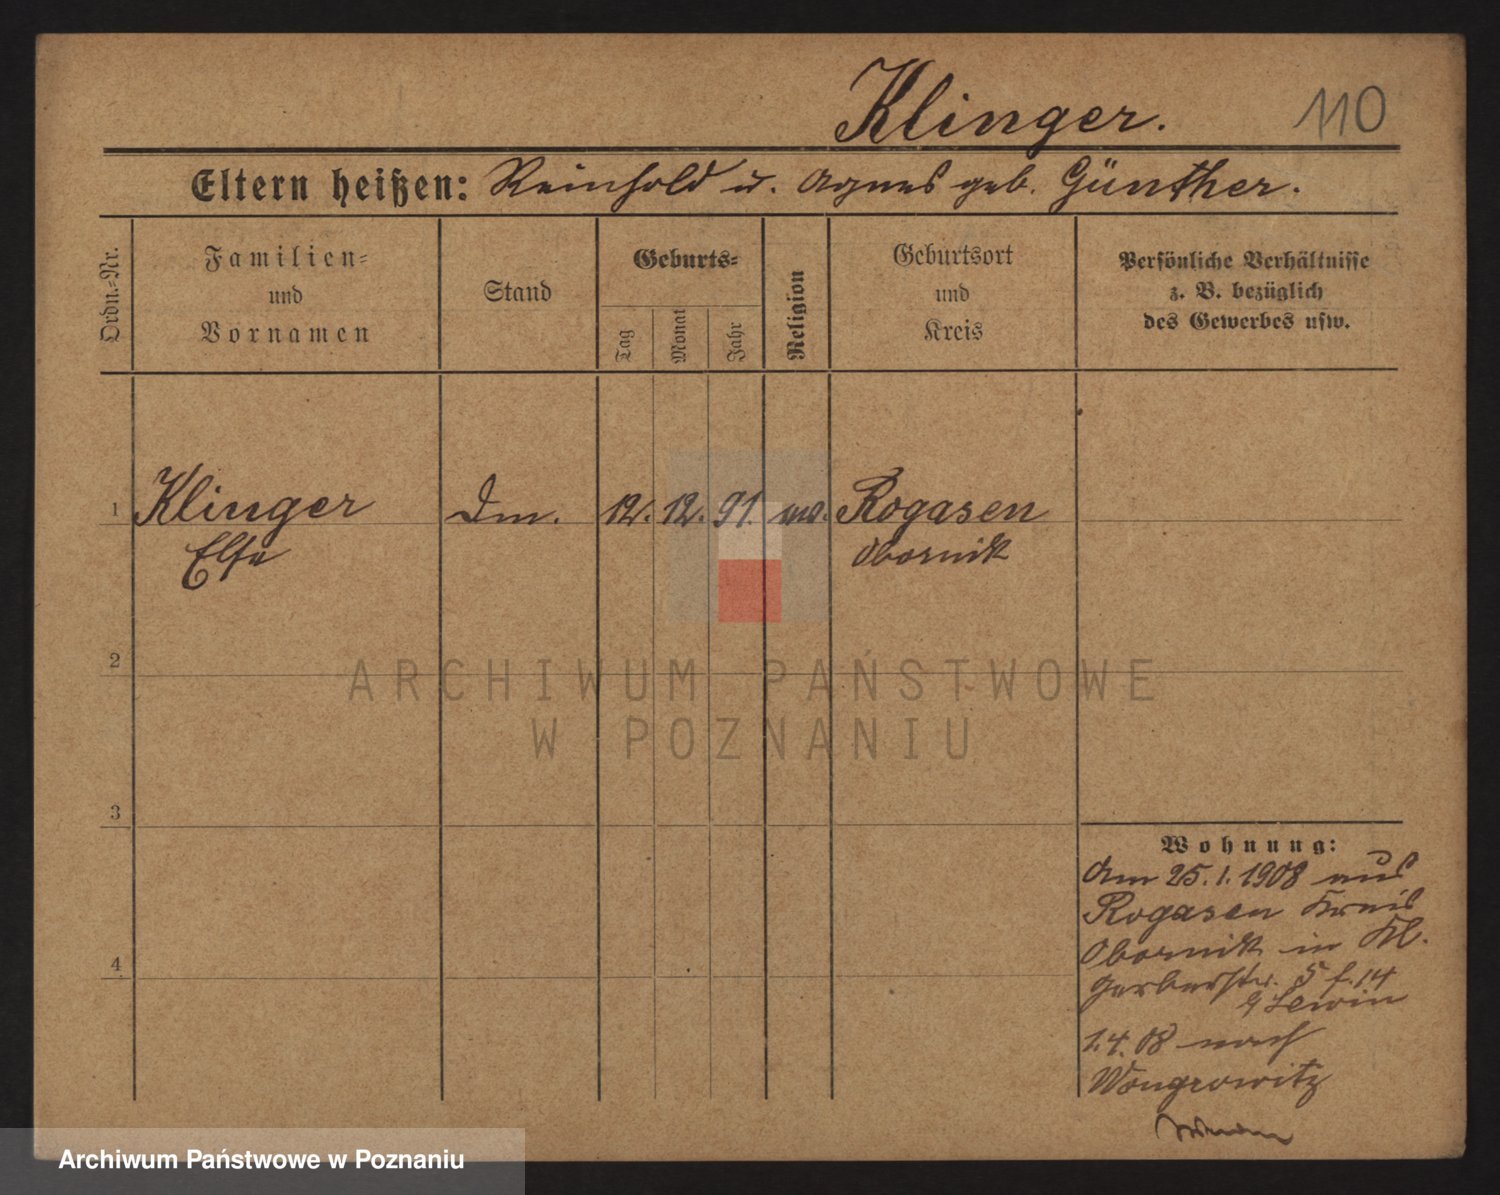 Klinger. 110
Eltern heißen: Reinhold u. Agnes geb. Günther.
Ordn.-Nr.
Familien-
und
Vornamen
Stand
Geburts-
Tag
Monat
Jahr
Religion
Geburtsort
und
Kreis
Persönliche Verhältnisse
z. B. bezüglich
des Gewerbes usw.
1 Klinger 12. 12. 91. Rogasen
Else Obornik
2
3
4
Wohnung:
Am 25.1.1908 aus
Rogasen Kreis
Obornik in Kl.
Gerberstr. 5
Lewin
1.4.08 nach
Wongrowitz
ARCHIWUM PAŃSTWOWE
W POZNANIU
Archiwum Państwowe w Poznaniu